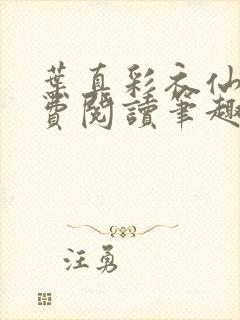 葉真彩衣仙
費閱讀筆趣
汪勇